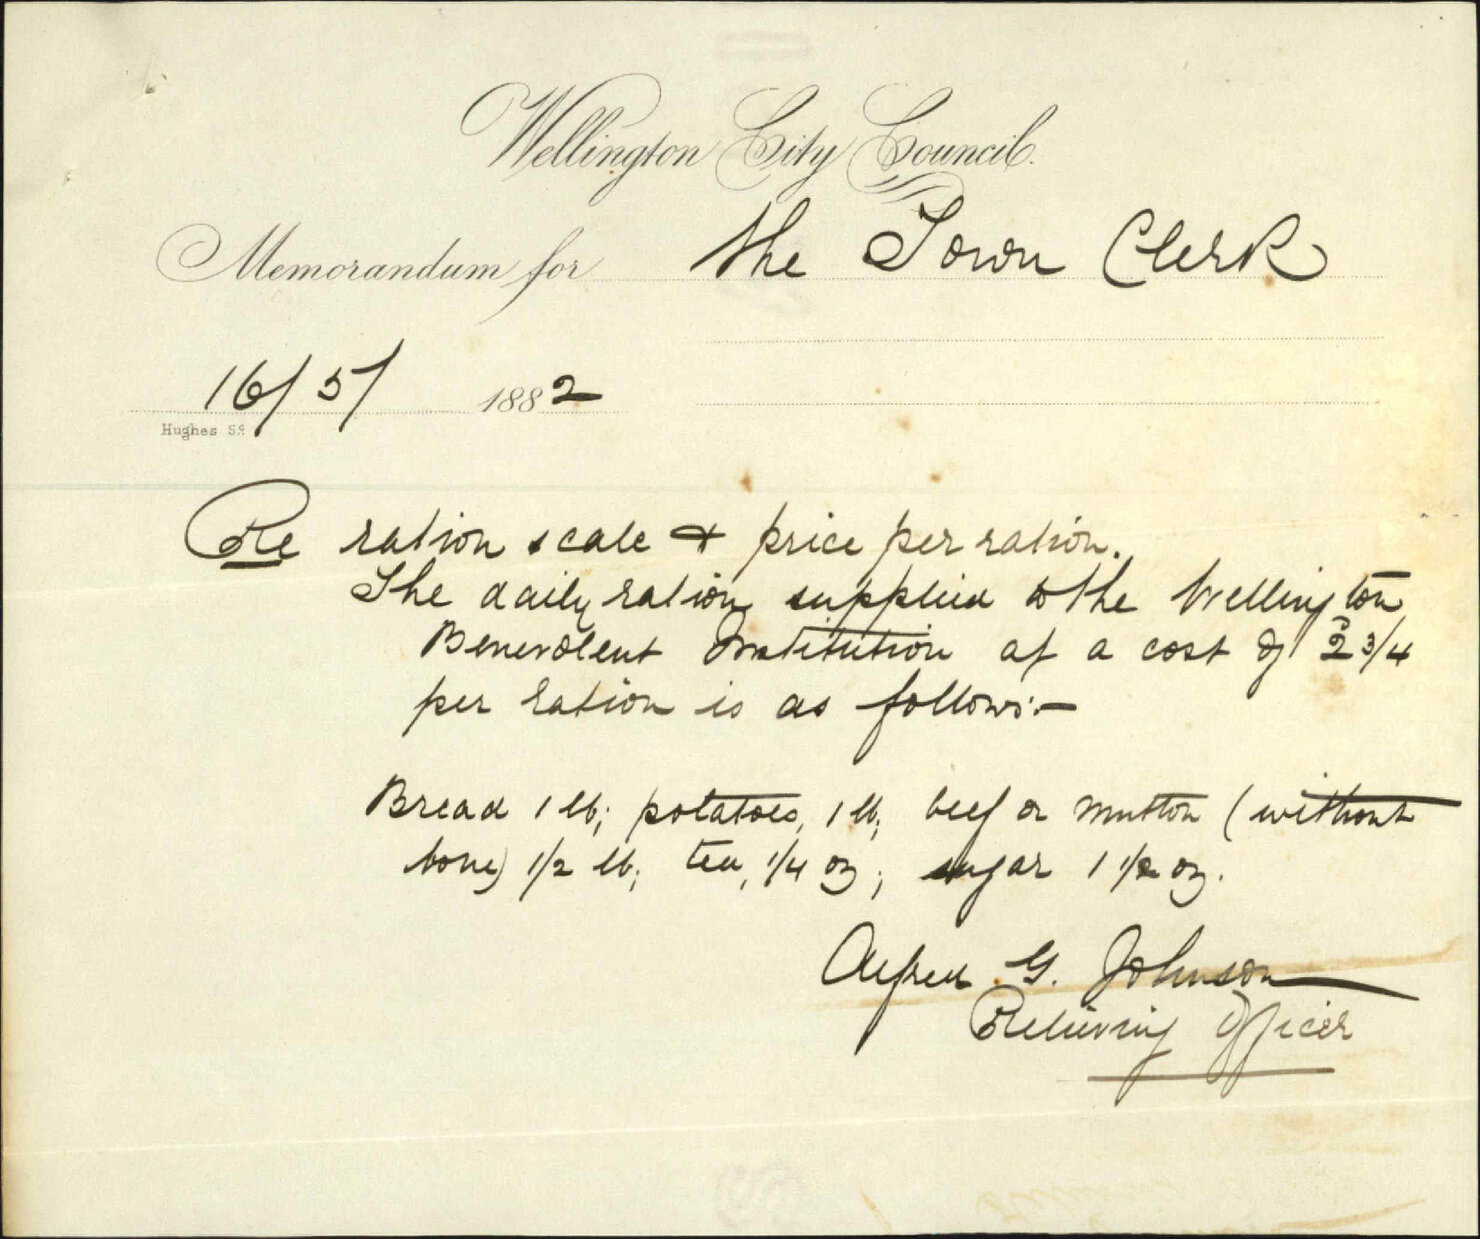 Wellington City Council.
Memorandum for The Town Clerk
16/5/ 1882
Hughes Sc
Re ration scale & price per ration.
The daily ration supplied to the Wellington
Benevolent Institution at a cost of 2 3/4
per ration is as follows:-
Bread 1 lb; potatoes, 1 lb; beef or mutton (without
bone) 1/2 lb; tea, 1/4 oz; sugar 1 1/2 oz.
Alfred G. Johnson
Relieving Officer